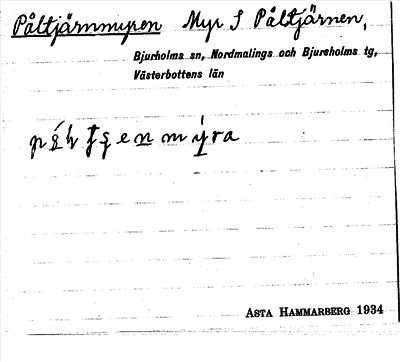 Påltjärnmyren Myr S Påltjärnen,
Bjurholms sn, Nordmalings och Bjurholms tg,
Västerbottens län
ASTA HAMMARBERG 1934